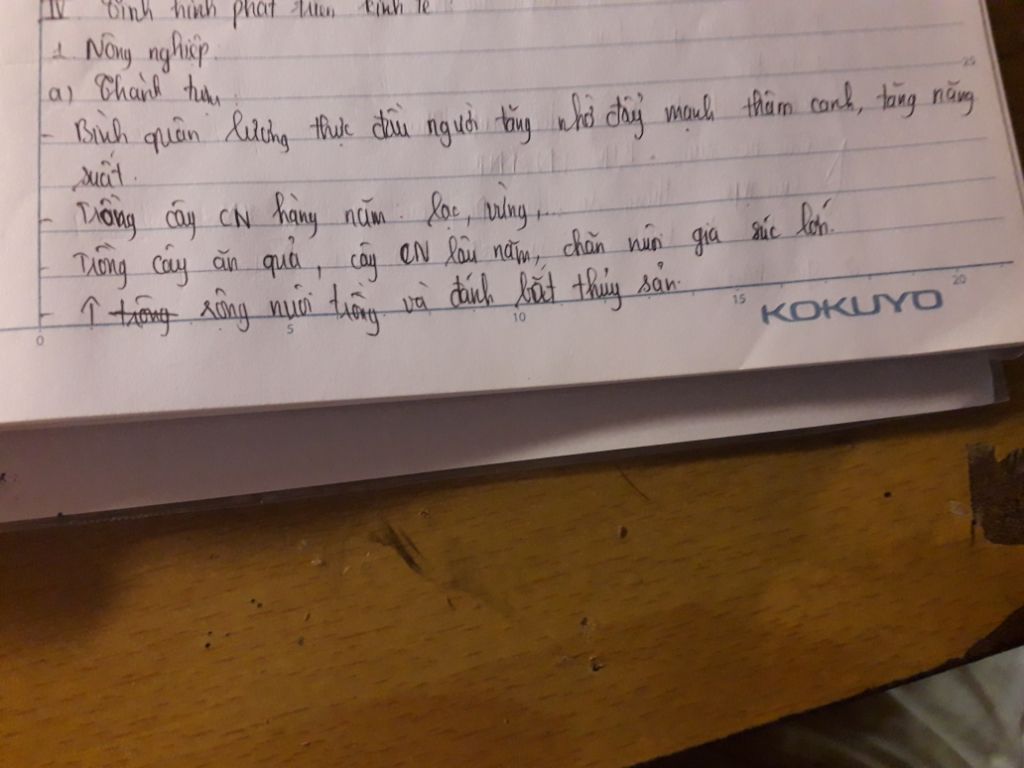 IV. Tình hình phát triển kinh tế
1. Nông nghiệp.
a) Thành tựu.
- Bình quân lương thực đầu người tăng nhờ đẩy mạnh thâm canh, tăng năng
xuất.
- Trồng cây CN hàng năm. lạc, vừng,...
- Trồng cây ăn quả, cây CN lâu năm, chăn nuôi gia súc lớn.
- ↑ trồng rộng nuôi trồng và đánh bắt thủy sản.
0 5 10 15 20
25
KOKUYO